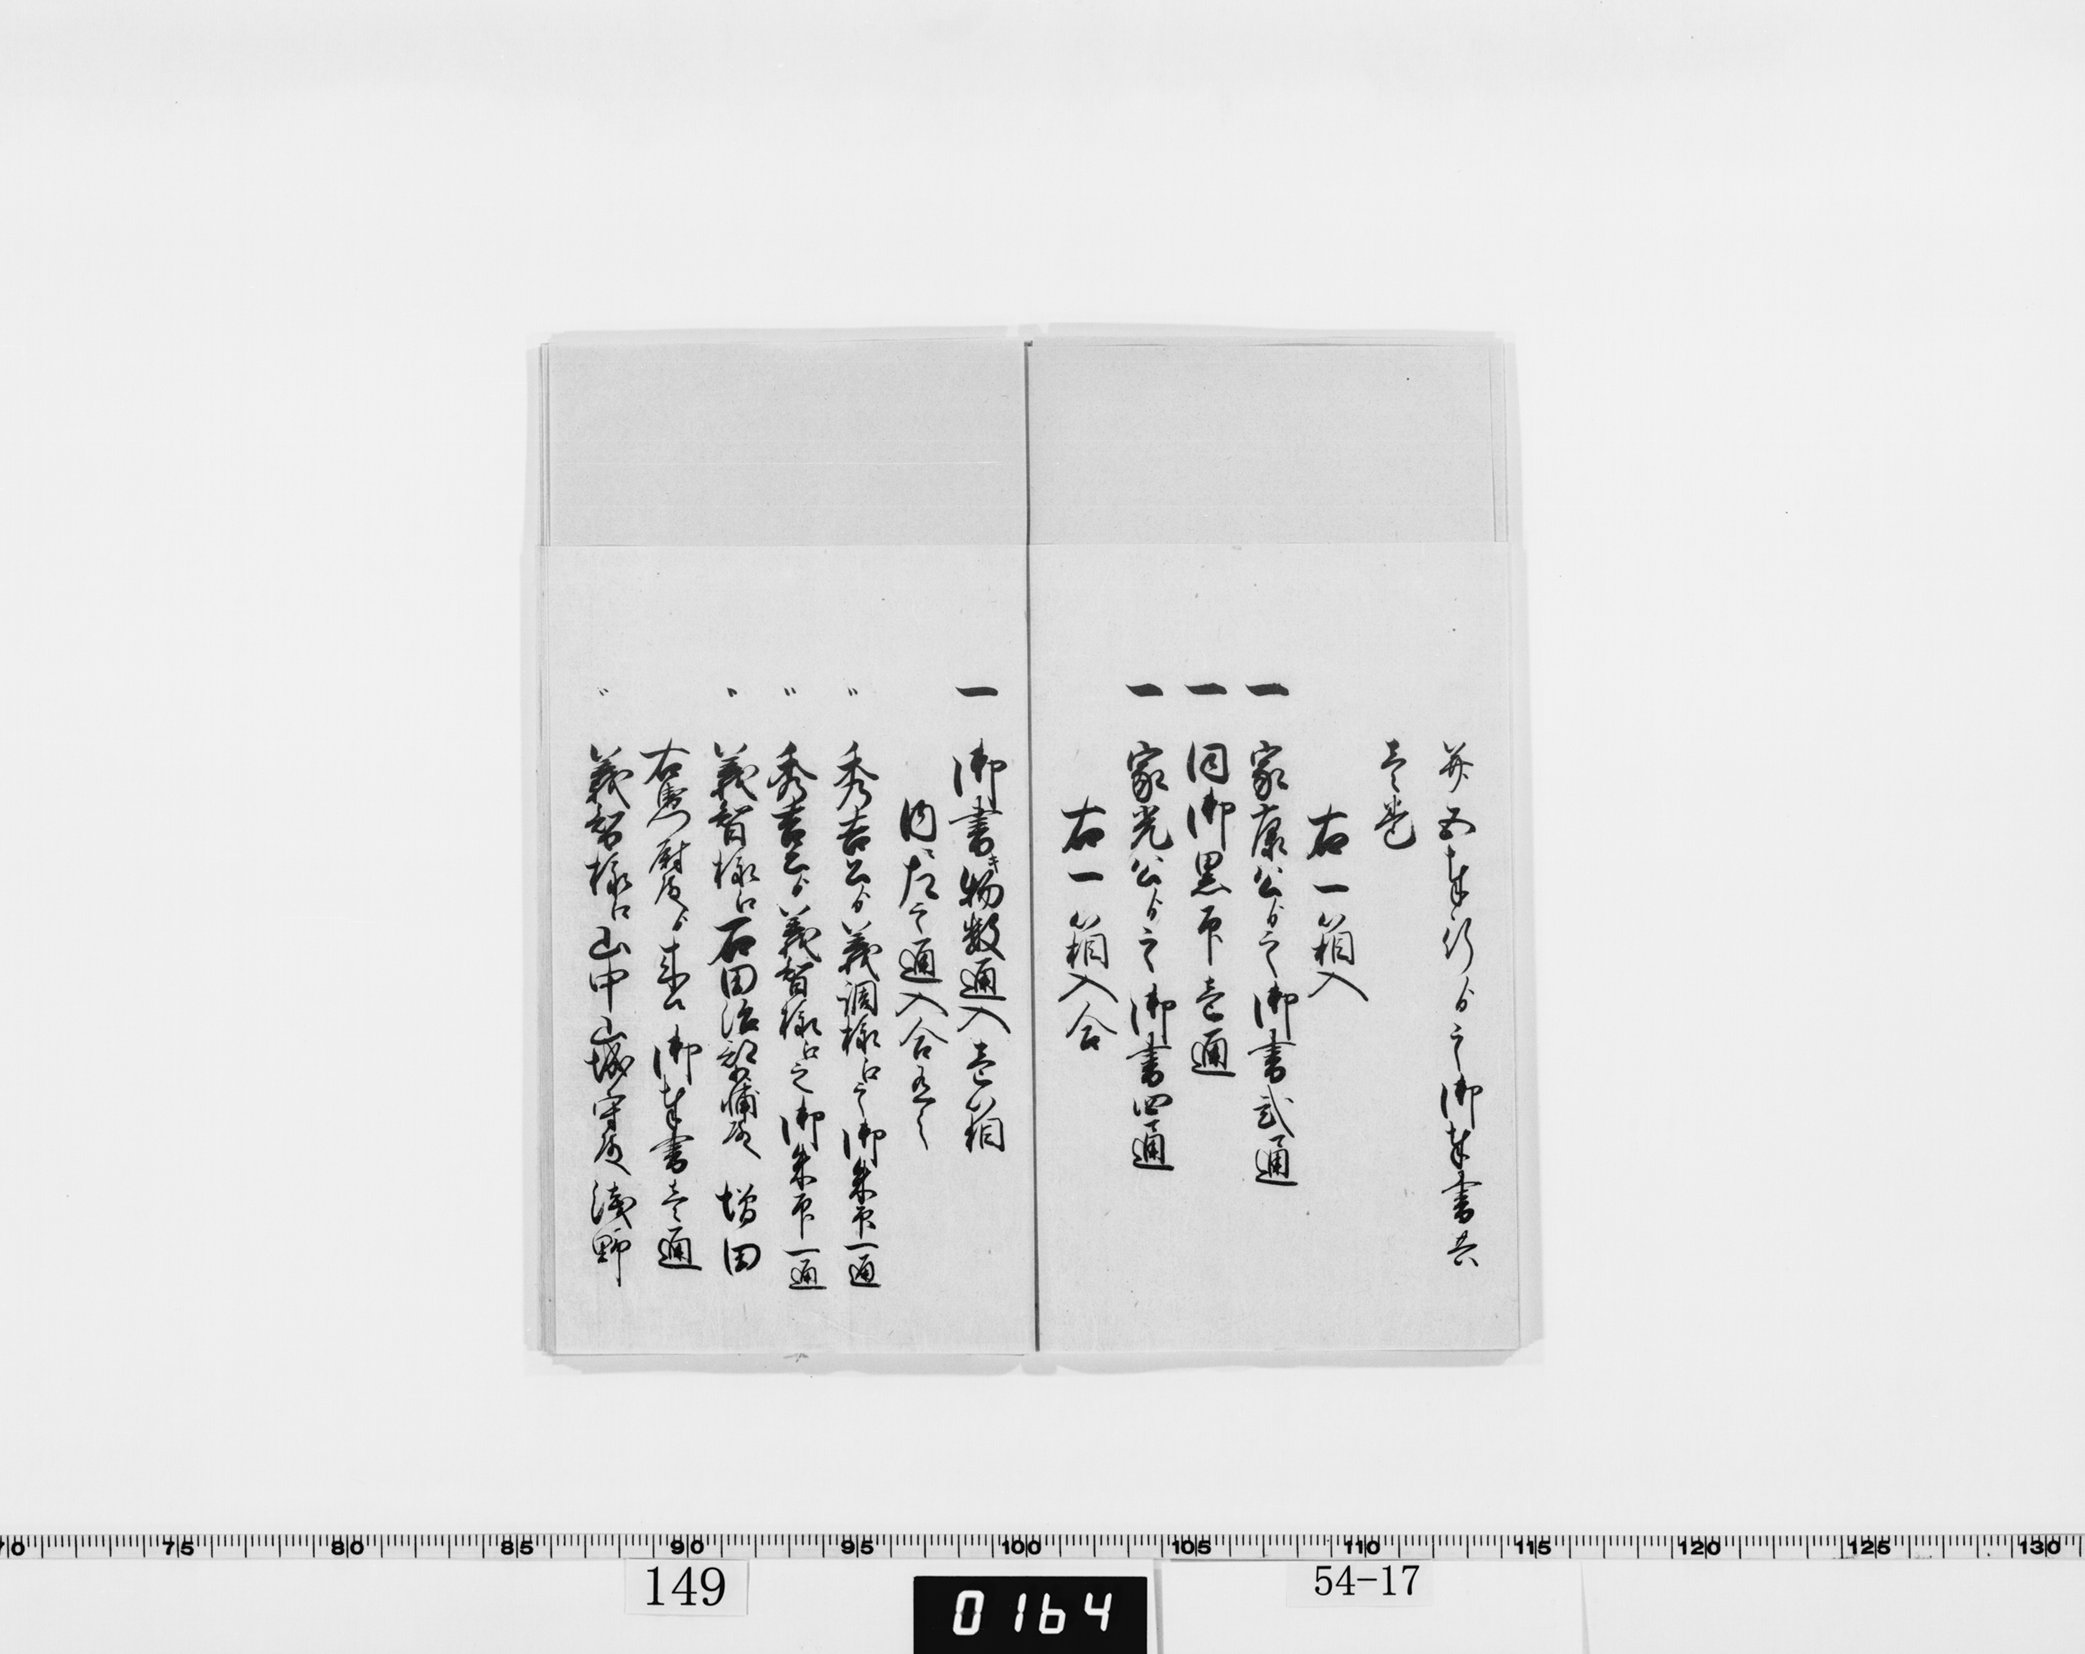 并五奉行ゟ之御奉書共
壱巻
右一箱入
一 家康公ゟ之御書弐通
一 同御黒印壱通
一 家光公ゟ之御書四通
右一箱入合
一 御書キ物数通入壱箱
内ニ左之通入合有之
〃 秀吉公ゟ義調様江之御朱印一通
〃 秀吉公ゟ義智様江之御朱印一通
〃 義智様江石田治部少輔殿 増田
右衛門尉殿ゟ来候御奉書壱通
〃 義智様江山中山城守殿 浅野
70 75 80 85 90 95 100 105 110 115 120 125 130
149
0164
54-17